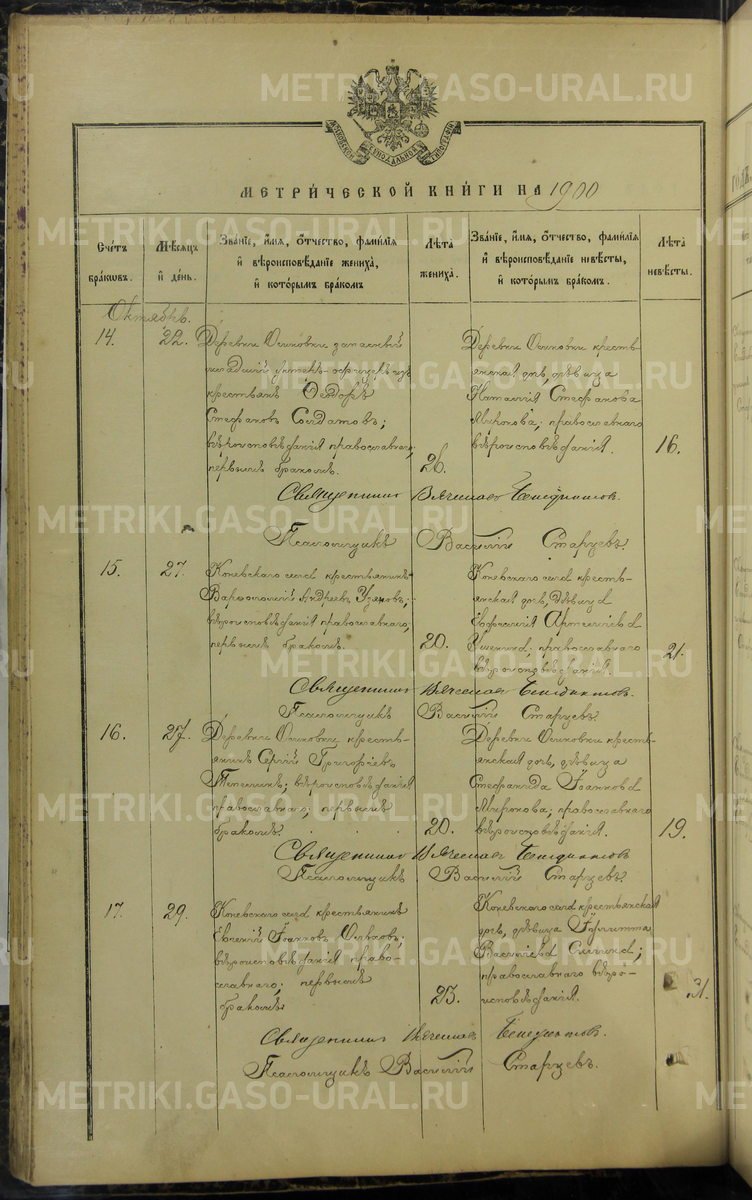 METRIKI.GASO-URAL.RU
МОСКОВСКОЙ СѴНОДАЛЬНОЙ ТИПОГРАФІИ
МЕТРИ́ЧЕСКОЙ КНИ́ГИ НА 1900
Счётъ бра́кѡвъ.
Мѣ́сяцъ и҆ де́нь.
Зва́нїе, и҆́мѧ, ѻ҆́тчество, фами́лїѧ и҆ вѣроисповѣ́данїе жениха̀, и҆ кото́рымъ бра́комъ
Лѣ́та жениха̀.
Зва́нїе, и҆́мѧ, ѻ҆́тчество, фами́лїѧ и҆ вѣроисповѣ́данїе невѣ́сты, и҆ кото́рымъ бра́комъ.
Лѣ́та невѣ́сты.
Октябрь.
14.
22.
Деревни Осиновки запасный
младшій унтеръ-офицеръ изъ
крестьянъ Ѳеодоръ
Стефановъ Солдатовъ;
вѣроисповѣданія православнаго;
первымъ бракомъ.
26.
Деревни Осиновки кресть-
янская дочь, дѣвица
Наталія Стефанова
Миронова; православнаго
вѣроисповѣданія.
16.
Священникъ Вячеславъ Бенедиктовъ.
Псаломщикъ Василій Старцевъ.
15.
27.
Коневскаго села крестьянинъ
Варѳоломей Андреевъ
вѣроисповѣданія православнаго;
первымъ бракомъ.
20.
Коневскаго села кресть-
янская дочь, дѣвица
православнаго
вѣроисповѣданія.
21.
Священникъ Вячеславъ Бенедиктовъ.
Псаломщикъ Василій Старцевъ.
16.
27.
Деревни Осиновки кресть-
янинъ Сергій Григоріевъ
вѣроисповѣданія
православнаго; первымъ
бракомъ.
20.
Деревни Осиновки кресть-
янская дочь, дѣвица
Стефанида Іоаннова
Миронова; православнаго
вѣроисповѣданія.
19.
Священникъ Вячеславъ Бенедиктовъ
Псаломщикъ Василій Старцевъ.
17.
29.
Коневскаго села крестьянинъ
Евгеній Іоанновъ
вѣроисповѣданія право-
славнаго; первымъ
бракомъ.
23.
Коневскаго села крестьянская
дочь, дѣвица Іулитта
Васильева
православнаго вѣро-
исповѣданія.
31.
Священникъ Вячеславъ Бенедиктовъ.
Псаломщикъ Василій Старцевъ.